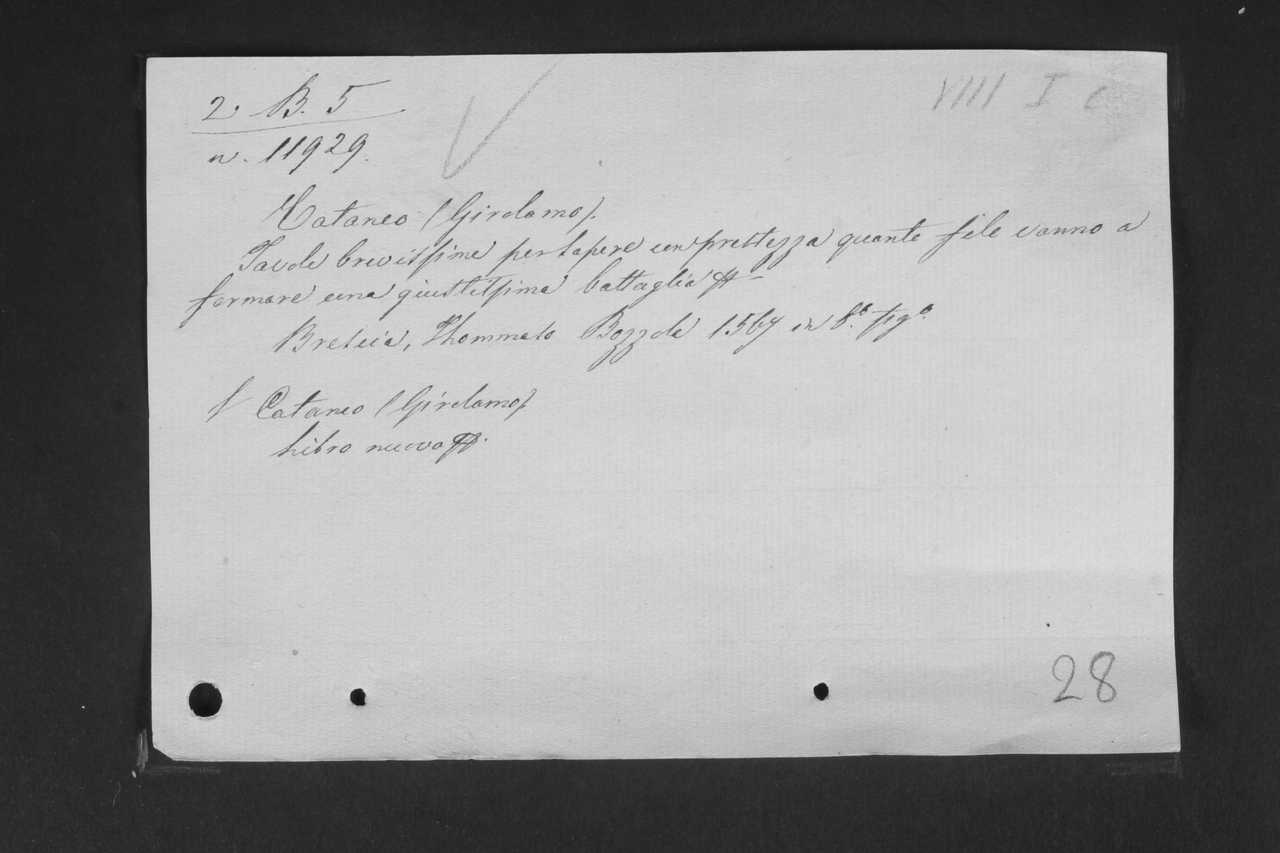 2. B. 5
n. 11929.
VIII I C
Cataneo (Girolamo).
Tavole brevissime per sapere con prestezza quante file vanno a
formare una giustissima battaglia &
Brescia, Thommaso Bozzola 1567 in 8.° fig.°
Cataneo (Girolamo).
Libro nuovo &.
28